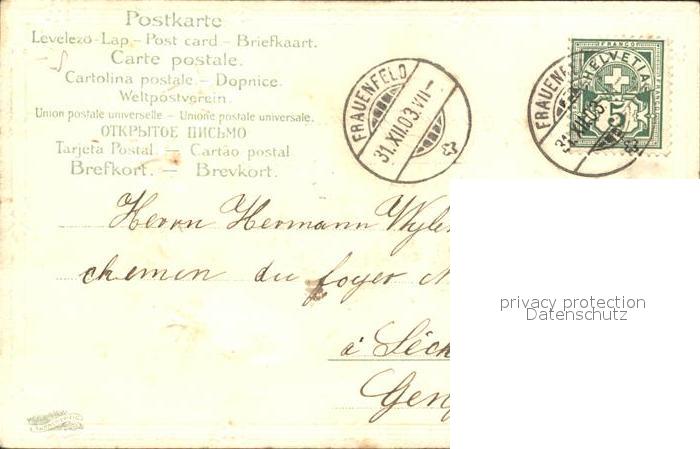 Postkarte
Levelező-Lap – Post card – Briefkaart.
Carte postale.
Cartolina postale – Dopnice.
Weltpostverein.
Union postale universelle – Unione postale universale.
ОТКРЫТОЕ ПИСЬМО
Tarjeta Postal. — Cartão postal
Brefkort. — Brevkort.
FRAUENFELD
31.XII.03.VII–
FRANCO
HELVETIA
5
FRAUENFELD
31.XII.03
Herrn Hermann Wyle
chemin du foyer N
à Séch
Gen
privacy protection
Datenschutz